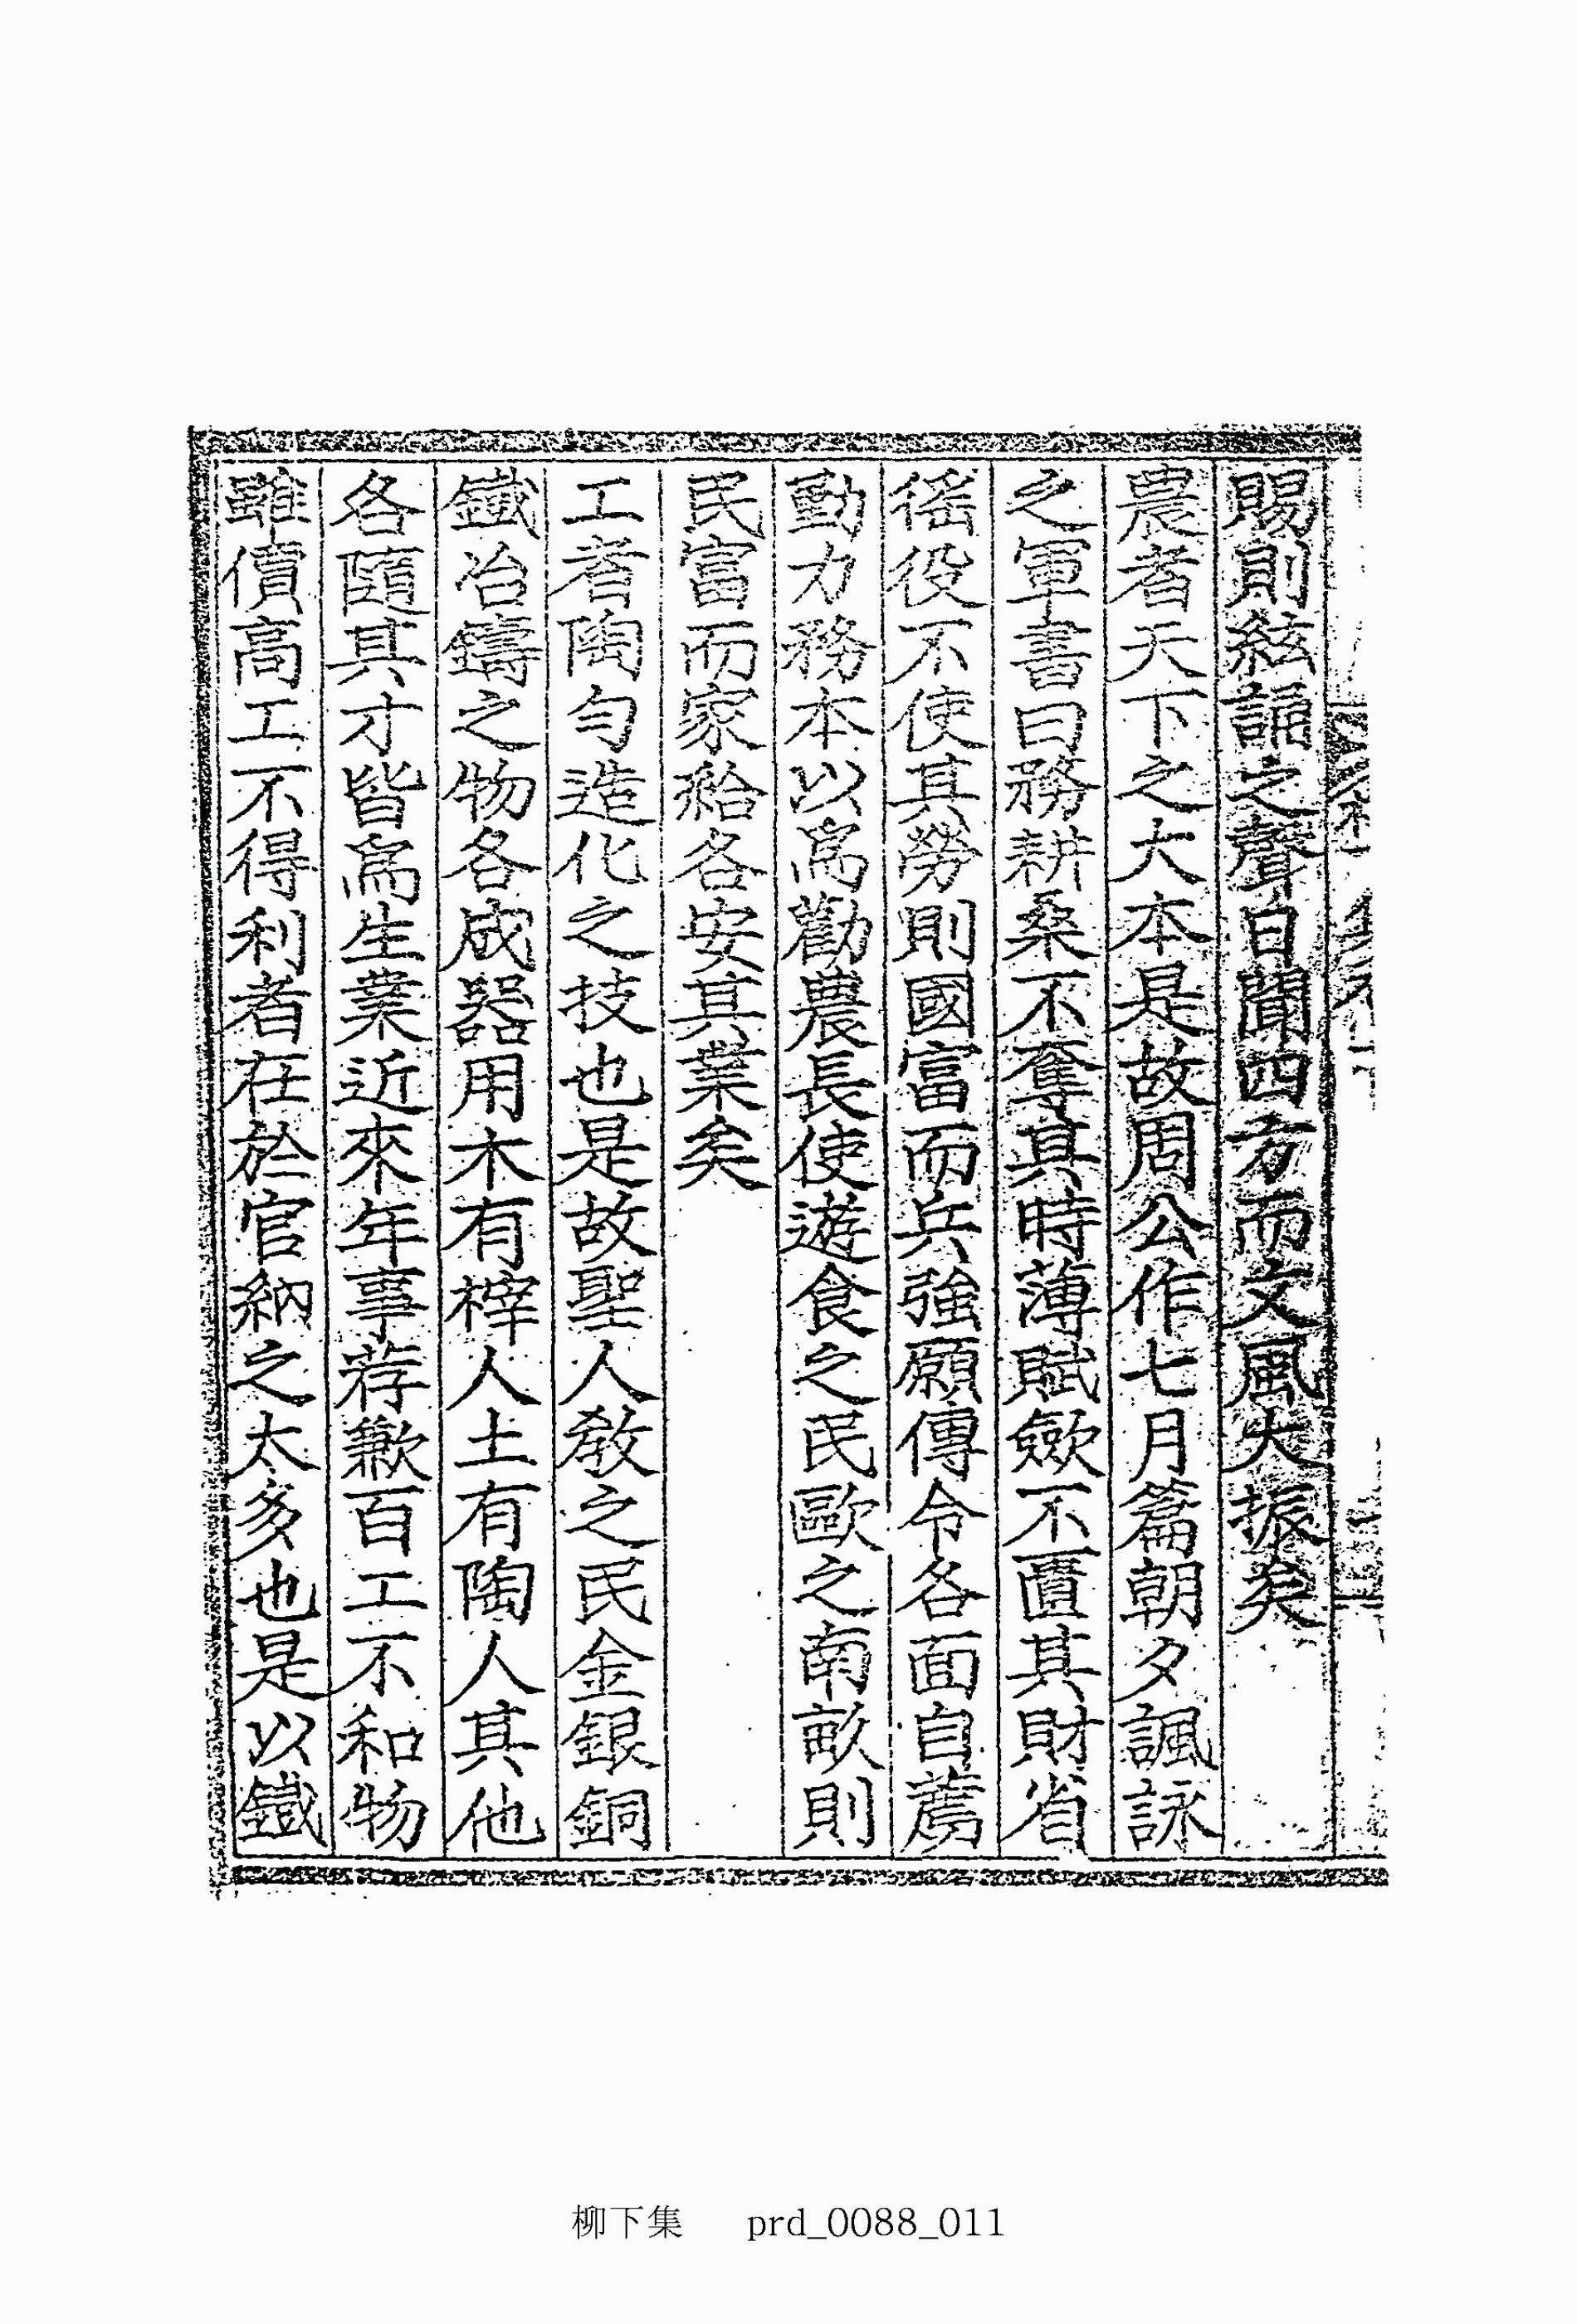 賜則絃誦之聲自聞四方而文風大振矣
農者天下之大本是故周公作七月篇朝夕諷詠
之軍書曰務耕桑不奪其時薄賦斂不匱其財省
徭役不使其勞則國富而兵強願傳令各面自薦
勤力務本以爲勸農長使遊食之民歐之南畝則
民富而家給各安其業矣
工者陶匀造化之技也是故聖人敎之民金銀銅
鐵冶鑄之物各成器用木有榟人土有陶人其他
各隨其才皆爲生業近來年事荐歉百工不和物
雖價高工不得利者在於官納之太多也是以鐵
柳下集 prd_0088_011